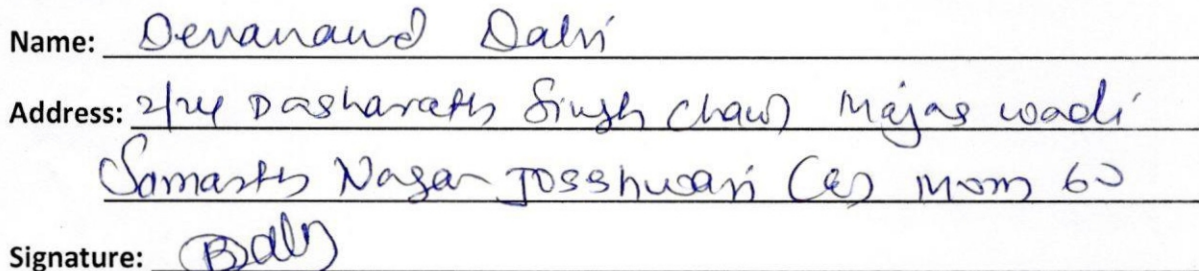 Name: Devanand Dalvi
Address: 2/24 Dasharath Singh Chawl Majas wadi
Samarth Nagar Jogeshwari (E) Mum 60
Signature: